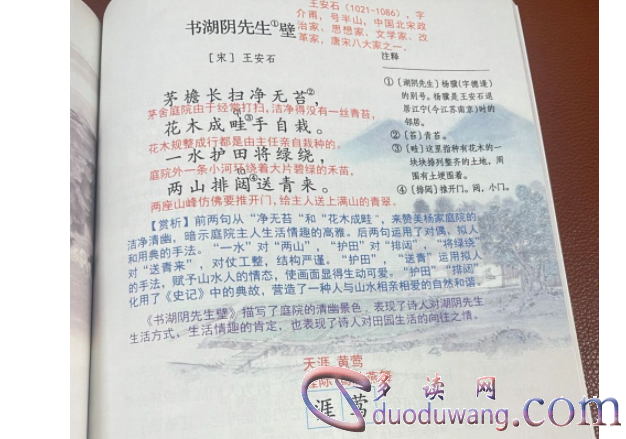 王安石(1021-1086),字
介甫,号半山,中国北宋政
治家、思想家、文学家、改
革家,唐宋八大家之一.
书湖阴先生①壁
[宋] 王安石
茅檐长扫净无苔②,
茅舍庭院由于经常打扫,洁净得没有一丝青苔,
花木成畦③手自栽。
花木规整成行都是由主任亲自栽种的。
一水护田将绿绕,
庭院外一条小河环绕着大片碧绿的禾苗,
两山排闼④送青来。
两座山峰仿佛要推开门,给主人送上满山的青翠.
注释
①[湖阴先生]杨骥(字德逢)
的别号。杨骥是王安石退
居江宁(今江苏南京)时的
邻居。
②[苔]青苔。
③[畦]这里指种有花木的一
块块排列整齐的土地,周
围有土埂围着。
④[排闼]推开门。闼,小门。
【赏析】前两句从“净无苔”和“花木成畦”,来赞美杨家庭院的
洁净清幽,暗示庭院主人生活情趣的高雅。后两句运用了对偶、拟人
和用典的手法。“一水”对“两山”,“护田”对“排闼”,“将绿绕”
对“送青来”,对仗工整,结构严谨。“护田”,“送青”运用拟人
的手法,赋予山水人的情态,使画面显得生动可爱。“护田”“排闼”
化用了《史记》中的典故,营造了一种人与山水相亲相爱的自然和谐.
《书湖阴先生壁》描写了庭院的清幽景色,表现了诗人对湖阴先生
生活方式,生活情趣的肯定,也表现了诗人对田园生活的向往之情.
天涯 黄莺
涯 莺
多读网
duoduwang.com